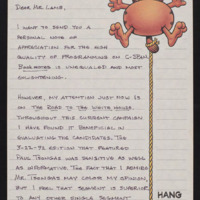 DEAR MR. LAMB,
I WANT TO SEND YOU A
PERSONAL NOTE OF
APPRECIATION FOR THE HIGH
QUALITY OF PROGRAMMING ON C-SPAN.
BOOKNOTES IS UNEQUALED AND MOST
ENLIGHTENING.
HOWEVER, MY ATTENTION JUST NOW IS
ON THE ROAD TO THE WHITE HOUSE.
THROUGHOUT THIS CURRENT CAMPAIGN
I HAVE FOUND IT BENEFICIAL IN
EVALUATING THE CANDIDATES. THE
3-22-92 EDITION THAT FEATURED
PAUL TSONGAS WAS SENSITIVE AS WELL
AS INFORMATIVE. THE FACT THAT I ADMIRE
MR. TSONGAS MAY COLOR MY OPINION,
BUT I FEEL THAT SEGMENT IS SUPERIOR
TO ANY OTHER SINGLE SEGMENT
HANG